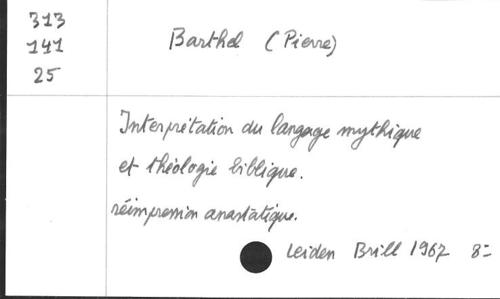 313
141
25
Barthel (Pierre)
Interprétation du langage mythique
et théologie biblique.
réimpression anastatique.
Leiden Brill 1967 8=